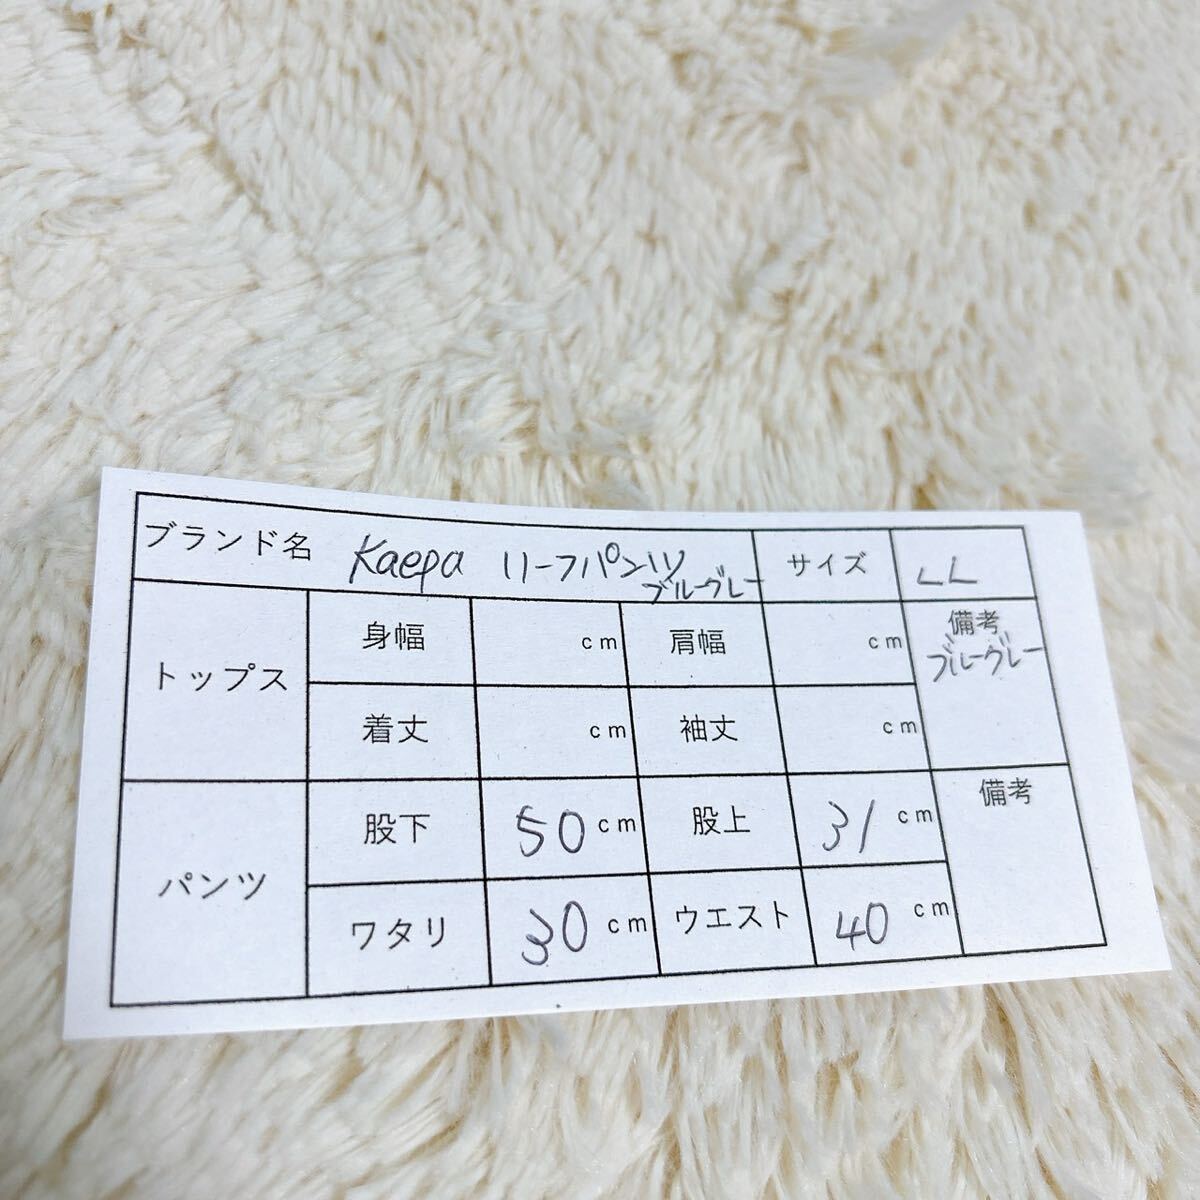 ブランド名 Kaepa リーフパンツ サイズ LL
ブルーグレー
トップス 身幅 cm 肩幅 cm 備考
ブルーグレー
着丈 cm 袖丈 cm
パンツ 股下 50 cm 股上 31 cm 備考
ワタリ 30 cm ウエスト 40 cm